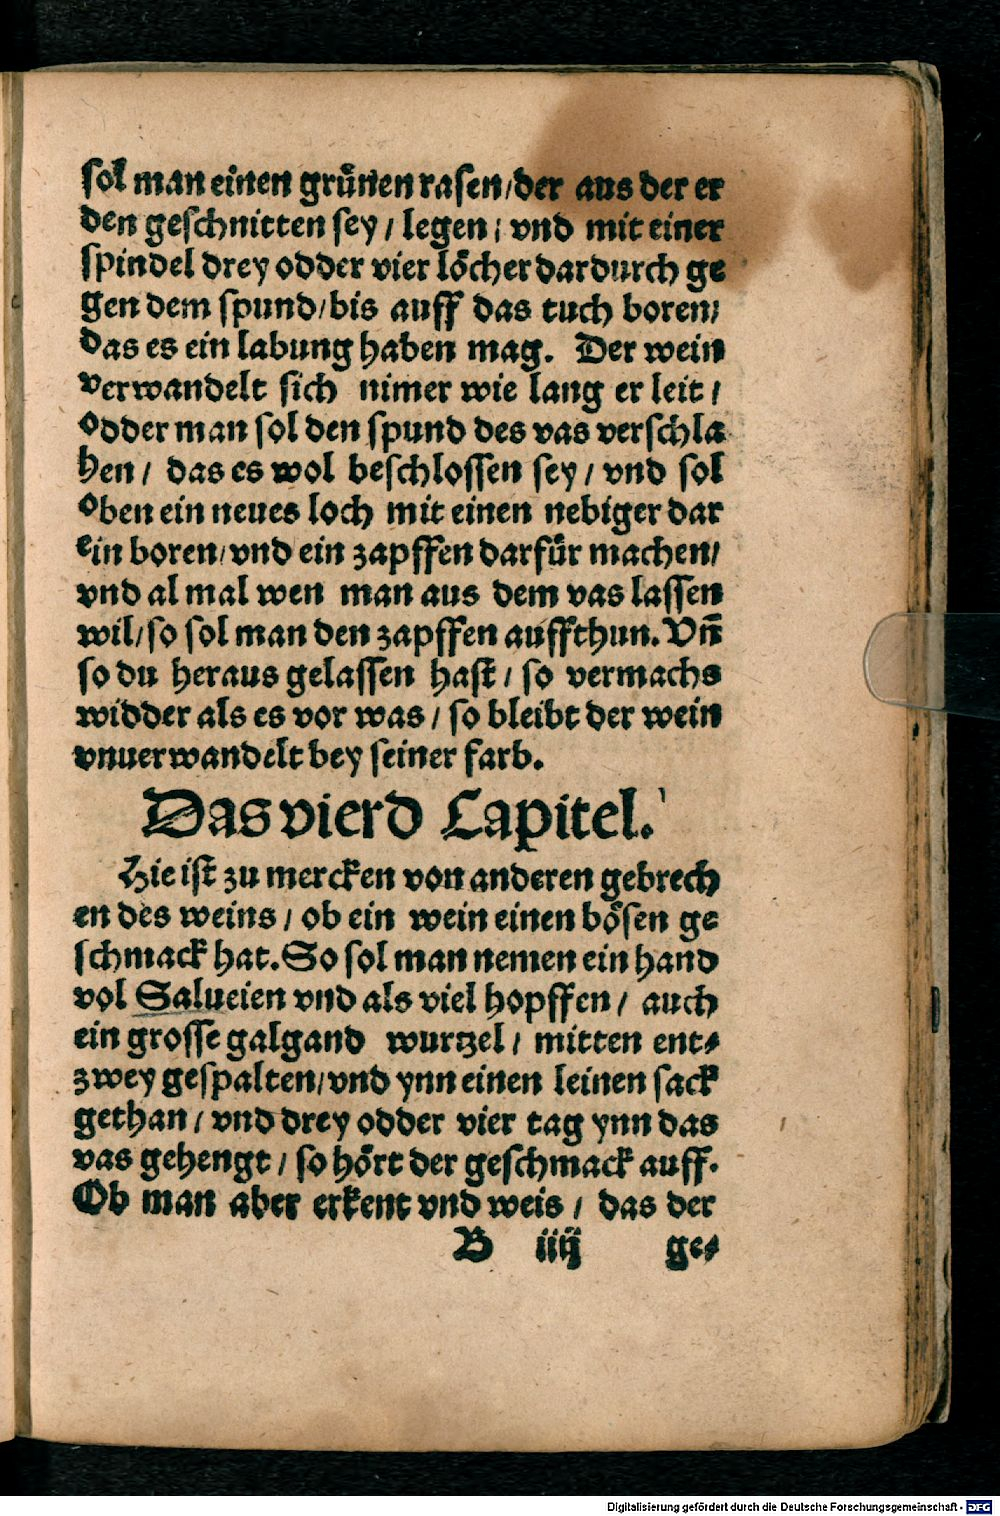 sol man einen grünen rasen/der aus der er
den geschnitten sey / legen / vnd mit einer
spindel drey odder vier löcher dardurch ge
gen dem spund/bis auff das tuch boren/
das es ein labung haben mag. Der wein
verwandelt sich nimer wie lang er leit /
odder man sol den spund des vas verschla
hen / das es wol beschlossen sey / vnd sol
oben ein neues loch mit einen nebiger dar
ein boren/vnd ein zapffen darfür machen/
vnd al mal wen man aus dem vas lassen
wil/so sol man den zapffen auffthun. Vñ
so du heraus gelassen hast / so vermachs
widder als es vor was / so bleibt der wein
vnuerwandelt bey seiner farb.
Das vierd Capitel.
Hie ist zu mercken von anderen gebrech
en des weins / ob ein wein einen bösen ge
schmack hat. So sol man nemen ein hand
vol Salueien vnd als viel hopffen / auch
ein grosse galgand wurtzel / mitten ent⸗
zwey gespalten/vnd ynn einen leinen sack
gethan / vnd drey odder vier tag ynn das
vas gehengt / so hört der geschmack auff.
Ob man aber erkent vnd weis / das der
B iiij ge⸗
Digitalisierung gefördert durch die Deutsche Forschungsgemeinschaft - DFG